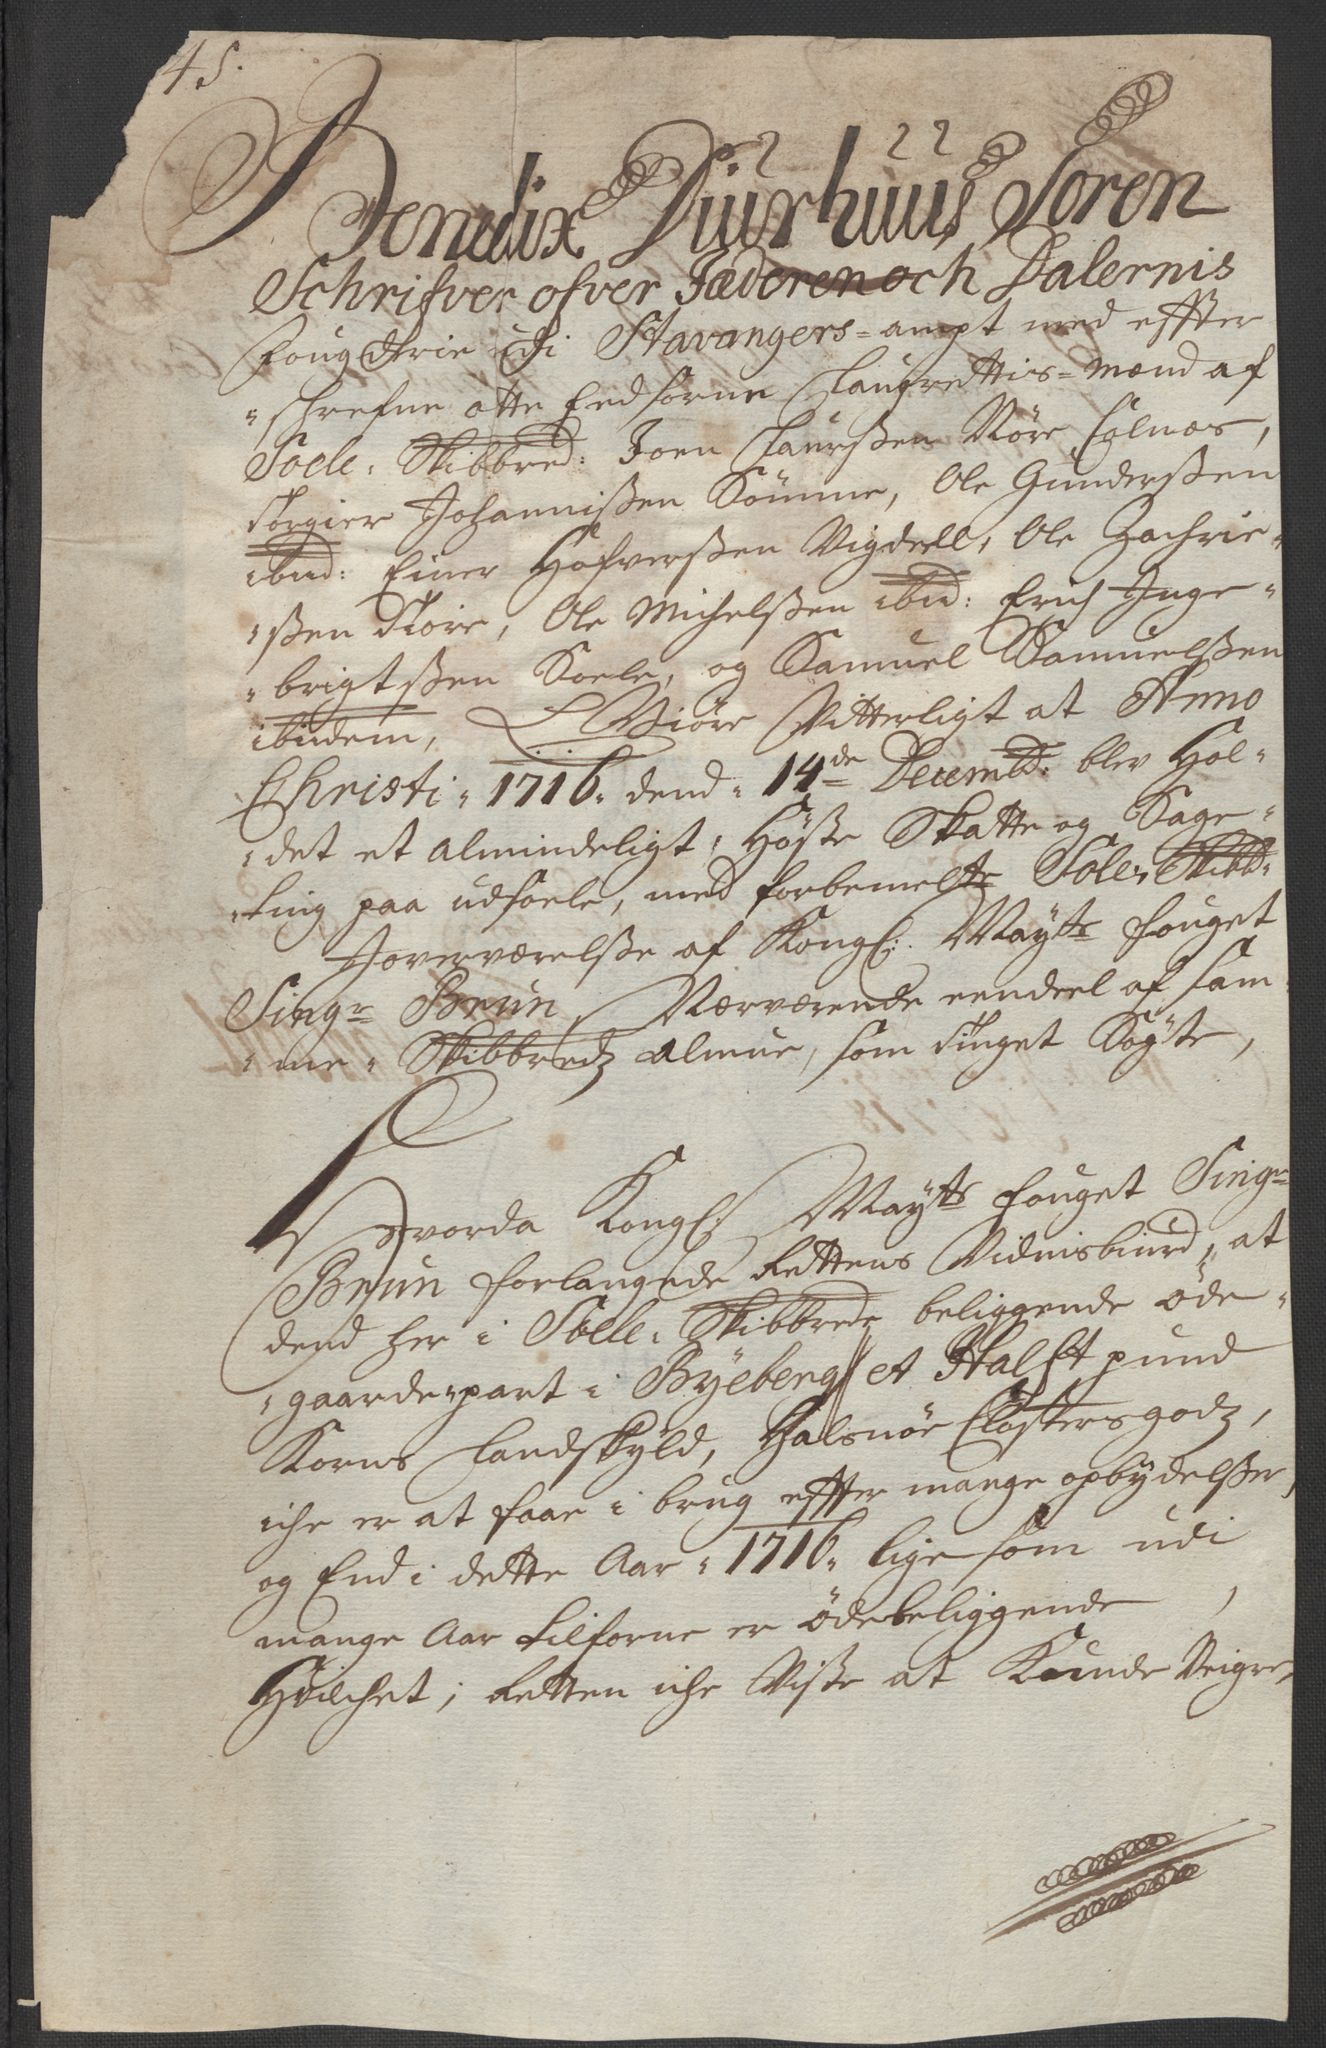 45.
Benedix Diurhuus Soren
Schrifver ofver Jæderen och Dalernis
Fougderie udi Stavangers-ampt med effter
"schrefne otte Eedsorne Laugrettis-Mænd af
Soele, Skibbred: Joen Laurßen Nöre Solnæs,
Törgier Johannißen Sömme, Ole Gunderßen
ibid: Einer Hafverßen Vigdeel, Ole Zachrie"
"ßen Tiore, Ole Michelßen ibid: Erich Inge"
"brigtßen Soele, og Samuel Samuelßen
ibidem, Giöre Vitterligt at Anno
Christi, 1716, dend, 14de Decembr: blev Hol"
"det et almindeligt, Höste Skatte og Sage"
"ting paa udsoele, med forbemelte Sole, Skibb"
Joverværelße af Kongl: Mayts fouget
Singr Brun, Nærværende eendeel af sam"
"me, Skibbredz almue, som tinget Sögte,
Hvorda Kongl: Mayts fouget Singr
Brun forlangede Rettens Vidnisbiurd, at
dend her i Soele, Skibbrede beliggende öde"
"gaarde-part i Byeberg et Halft pund
Korns Landskyld, Halsnöe Closters godz,
iche er at faae i brug effter mange opbydelßer,
og End i dette Aar, 1716, lige som udi
mange Aar tilforne er öde beliggende,
Hvilchet, Retten iche Viste at Kunde Veigre,